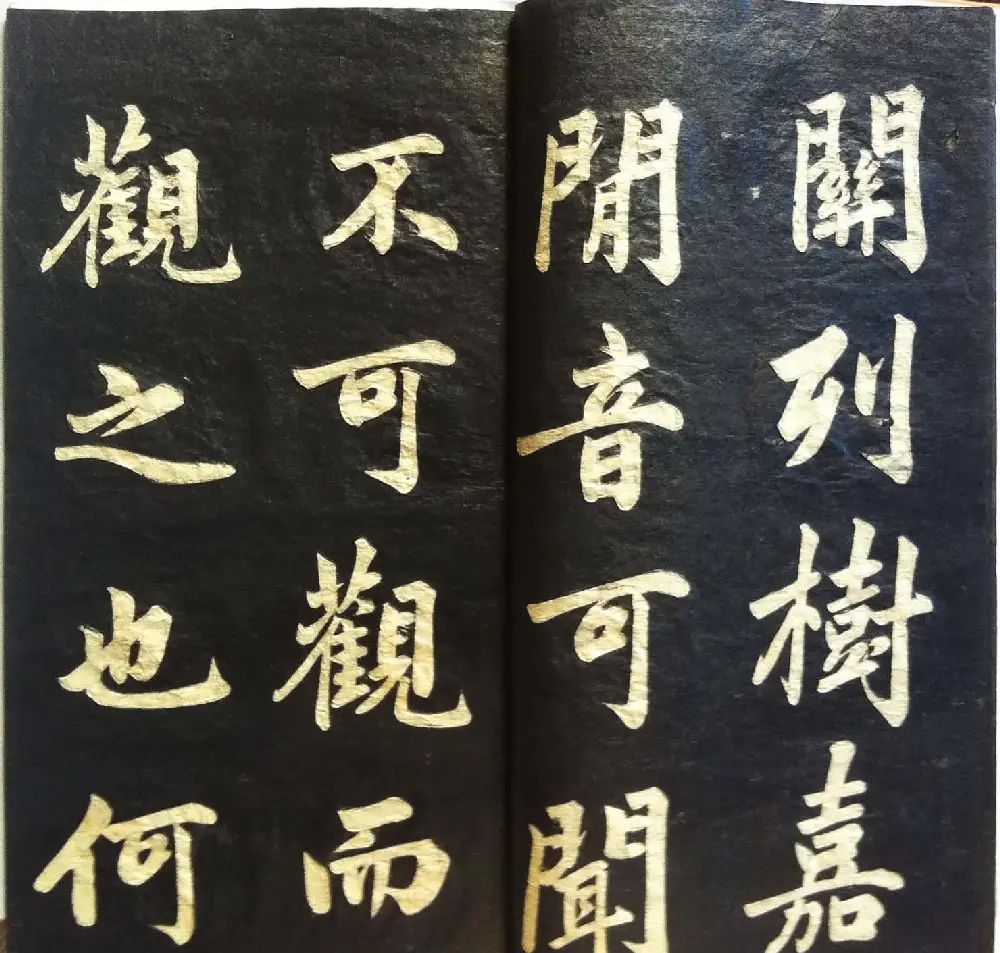 關列樹嘉
閒音可聞
不可觀而
觀之也何